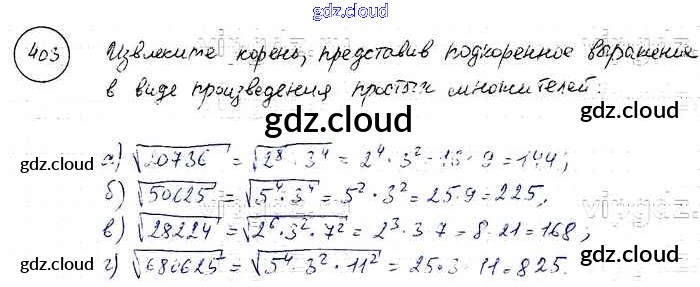 gdz.cloud
403 Извлеките корень, представив подкоренное выражение
в виде произведения простых множителей.
gdz.cloud gdz.cloud
gdz.cloud
а) √20736 = √2⁸·3⁴ = 2⁴·3² = 16·9 = 144;
б) √50625 = √5⁴·3⁴ = 5²·3² = 25·9 = 225,
в) √28224 = √2⁶·3²·7² = 2³·3·7 = 8·21 = 168;
gdz.cloud gdz.cloud
г) √680625 = √5⁴·3²·11² = 25·3·11 = 825.
gdz.cloud